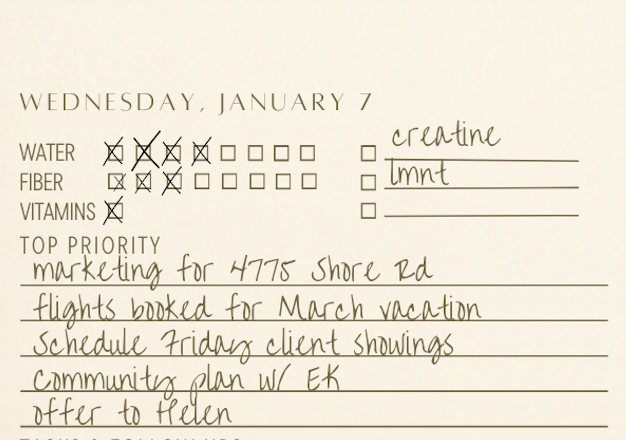 WEDNESDAY, JANUARY 7
WATER creatine
FIBER lmnt
VITAMINS
TOP PRIORITY
marketing for 4775 Shore Rd
flights booked for March vacation
Schedule Friday client showings
Community plan w/ EK
offer to Helen